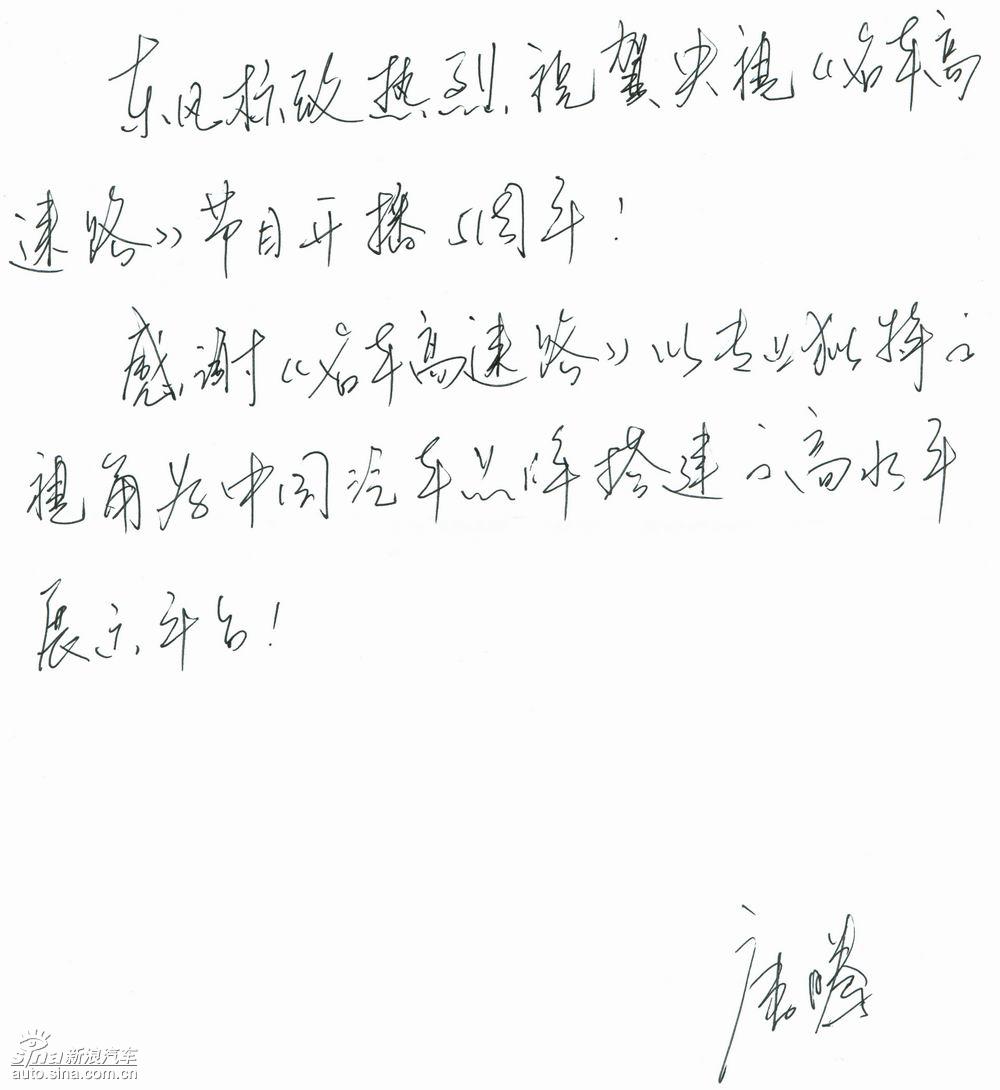 东风标致热烈祝贺央视《名车高
速路》节目开播5周年！
感谢《名车高速路》以专业独特的
视角为中国汽车品牌搭建的高水平
展示平台！
sina新浪汽车
auto.sina.com.cn